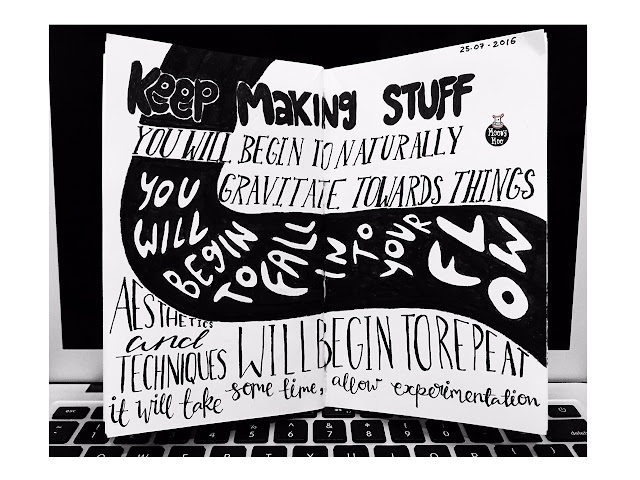 25.07.2016
Keep Making STUFF
YOU WILL BEGIN TO NATURALLY
GRAVITATE TOWARDS THINGS
YOU
WILL
BEGIN
TO FALL
IN TO
YOUR
FLOW
AESTHETICS
and
TECHNIQUES
WILL BEGIN TO REPEAT
it will take some time, allow experimentation
esc